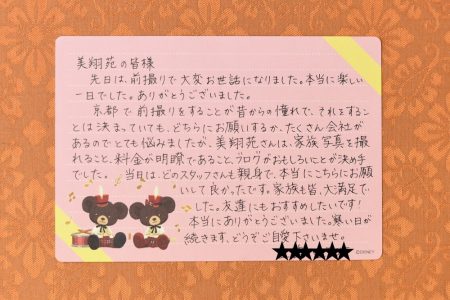 美翔苑の皆様
先日は、前撮りで大変お世話になりました。本当に楽しい
一日でした。ありがとうございました。
京都で前撮りをすることが昔からの憧れで、それをするこ
とは決まっていても、どちらにお願いするか、たくさん会社が
あるのでとても悩みましたが、美翔苑さんは、家族写真も撮
れること、料金が明瞭であること、ブログがおもしろいことが決め手
でした。 当日は、どのスタッフさんも親身で、本当にこちらにお願
いして良かったです。家族も皆、大満足で
した。友達にもおすすめしたいです！
本当にありがとうございました。寒い日が
続きます、どうぞご自愛下さいませ。
©DISNEY